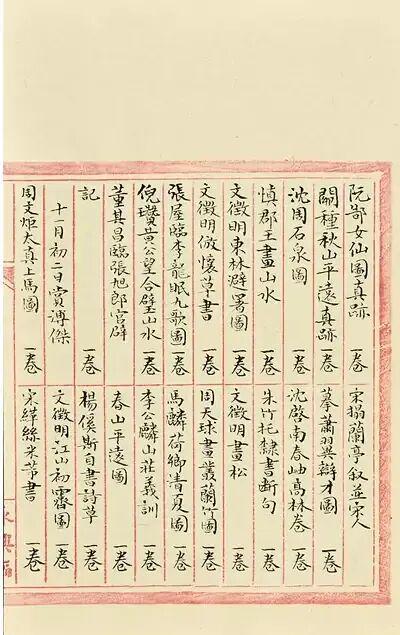 阮郜女仙圖真跡 一卷 宋搨蘭亭敘並宋人
關種秋山平遠真跡 一卷 摹蕭翼辯才圖 一卷
沈周石泉圖 一卷 沈啓南春岫高林卷 一卷
慎郡王畫山水 一卷 朱竹托隸書斷句 一卷
文徵明東林避暑圖 一卷 文徵明畫松 一卷
文徵明倣懷草書 一卷 周天球畫叢蘭竹圖 一卷
張屋臨李龍眠九歌圖 一卷 馬麟荷鄉清夏圖 一卷
倪瓚黃公望合璧山水 一卷 李公麟山莊義訓 一卷
董其昌臨張旭郎官壁 春山平遠圖 一卷
記 一卷 楊傒斯自書詩草 一卷
十一月初二日賞溥傑 文徵明江山初霽圖 一卷
周文炬太真上馬圖 一卷 宋緙絲米芾書 一卷